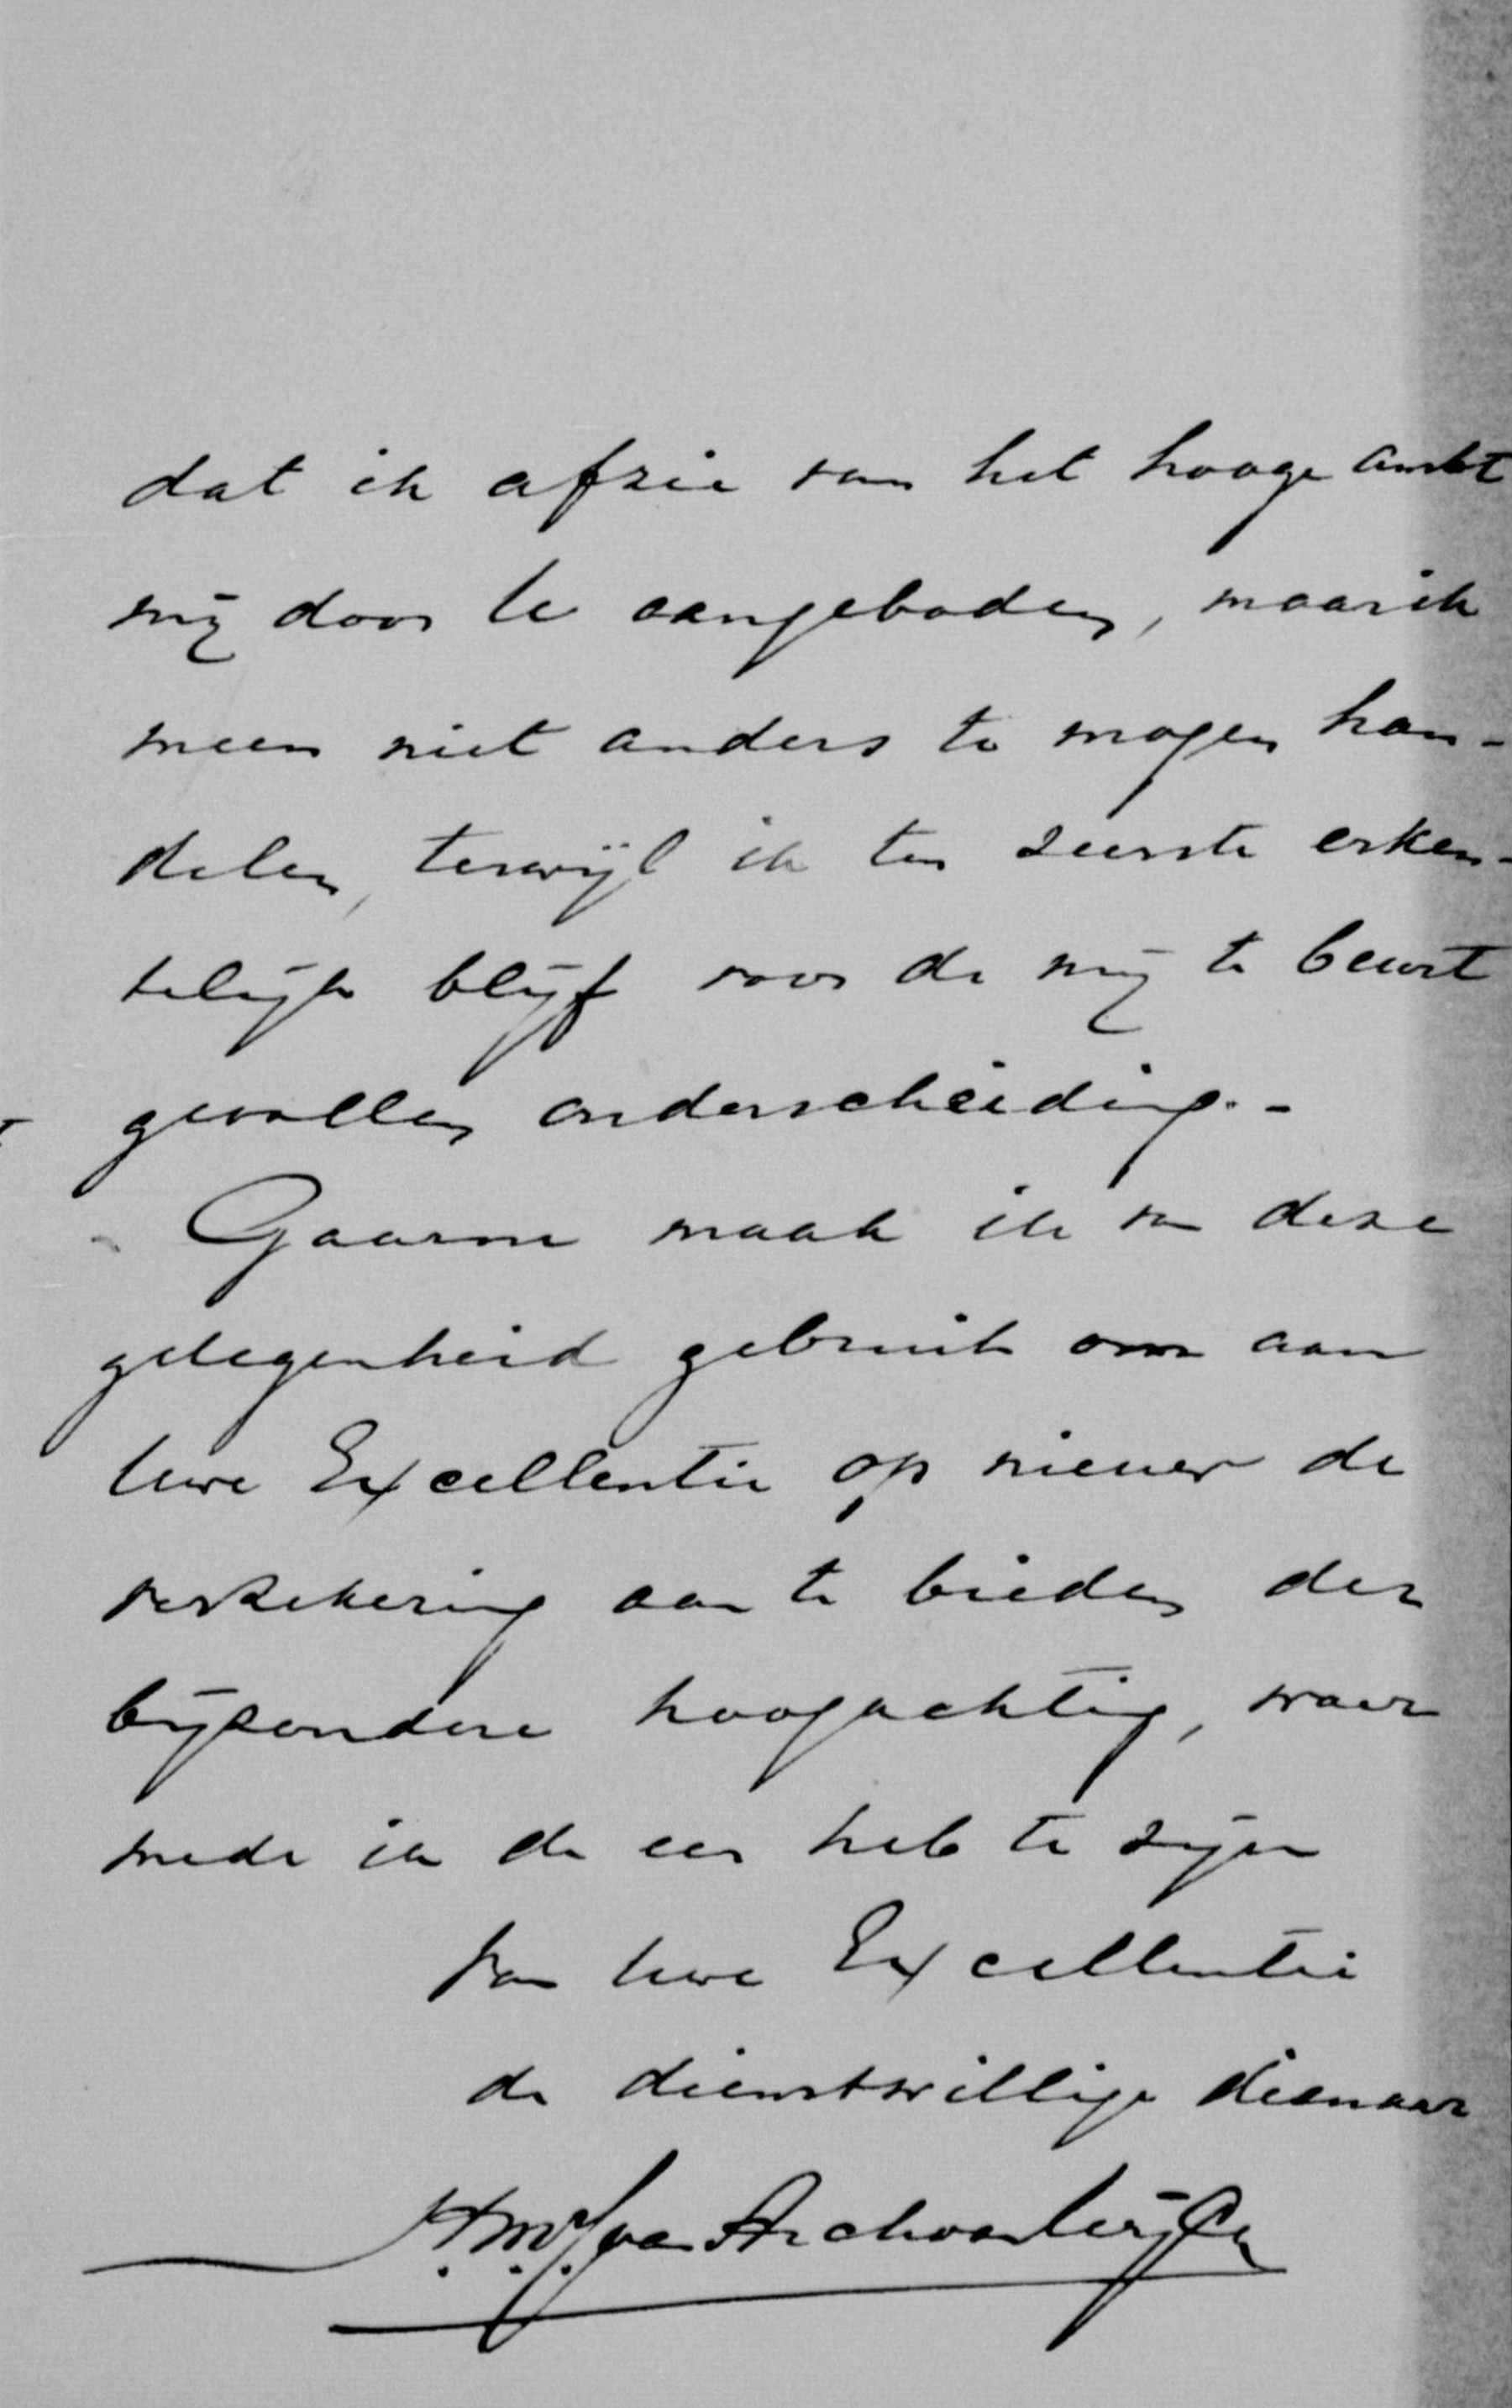 dat ik afzie van het hooge ambt
mij door U aangeboden, maar ik
meen niet anders te mogen han-
delen, terwijl ik ten zeerste erken-
telijk blijf voor de mij te beurt
gevallen onderscheiding. -
Gaarne maak ik van deze
gelegenheid gebruik om aan
Uwe Excellentie op nieuw de
verzekering aan te bieden der
bijzondere hoogachting, waar
mede ik de eer heb te zijn
van Uwe Excellentie
de dienstwillige dienaar